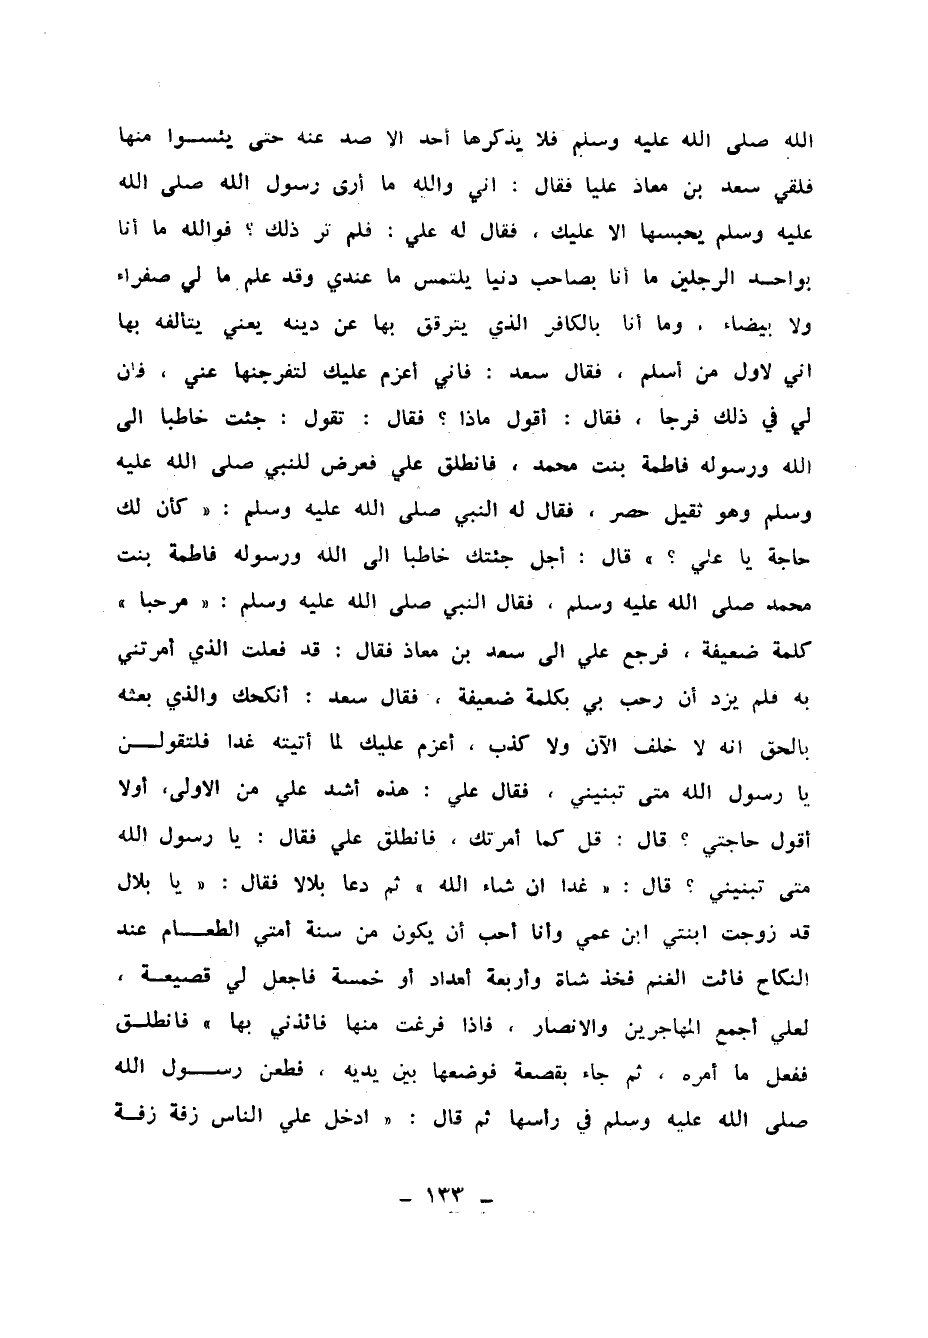 الله صلى الله عليه وسلم فلا يذكرها أحد الا صد عنه حتى يئسوا منها
فلقي سعد بن معاذ عليا فقال : اني والله ما أرى رسول الله صلى الله
عليه وسلم يحبسها الا عليك ، فقال له علي : فلم تر ذلك ؟ فوالله ما أنا
بواحد الرجلين ما أنا بصاحب دنيا يلتمس ما عندي وقد علم ما لي صفراء
ولا بيضاء ، وما أنا بالكافر الذي يترقق بها عن دينه يعني يتألفه بها
اني لاول من أسلم ، فقال سعد : فاني أعزم عليك لتفرجنها عني ، فان
لي في ذلك فرجا ، فقال : أقول ماذا ؟ فقال : تقول : جئت خاطبا الى
الله ورسوله فاطمة بنت محمد ، فانطلق علي فعرض للنبي صلى الله عليه
وسلم وهو ثقيل حصر ، فقال له النبي صلى الله عليه وسلم : « كأن لك
حاجة يا علي ؟ » قال : أجل جئتك خاطبا الى الله ورسوله فاطمة بنت
محمد صلى الله عليه وسلم ، فقال النبي صلى الله عليه وسلم : « مرحبا »
كلمة ضعيفة ، فرجع علي الى سعد بن معاذ فقال : قد فعلت الذي أمرتني
به فلم يزد أن رحب بي بكلمة ضعيفة ، فقال سعد : أنكحك والذي بعثه
بالحق انه لا خلف الآن ولا كذب ، أعزم عليك لما أتيته غدا فلتقولن
يا رسول الله متى تبنيني ، فقال علي : هذه أشد علي من الاولى، أولا
أقول حاجتي ؟ قال : قل كما أمرتك ، فانطلق علي فقال : يا رسول الله
متى تبنيني ؟ قال : « غدا ان شاء الله » ثم دعا بلالا فقال : « يا بلال
قد زوجت ابنتي ابن عمي وأنا أحب أن يكون من سنة أمتي الطعام عند
النكاح فائت الغنم فخذ شاة وأربعة أمداد أو خمسة فاجعل لي قصيعة ،
لعلي أجمع المهاجرين والانصار ، فاذا فرغت منها فائذني بها » فانطلق
ففعل ما أمره ، ثم جاء بقصعة فوضعها بين يديه ، فطعن رسول الله
صلى الله عليه وسلم في رأسها ثم قال : « ادخل علي الناس زفة زفة
- ١٣٣ -